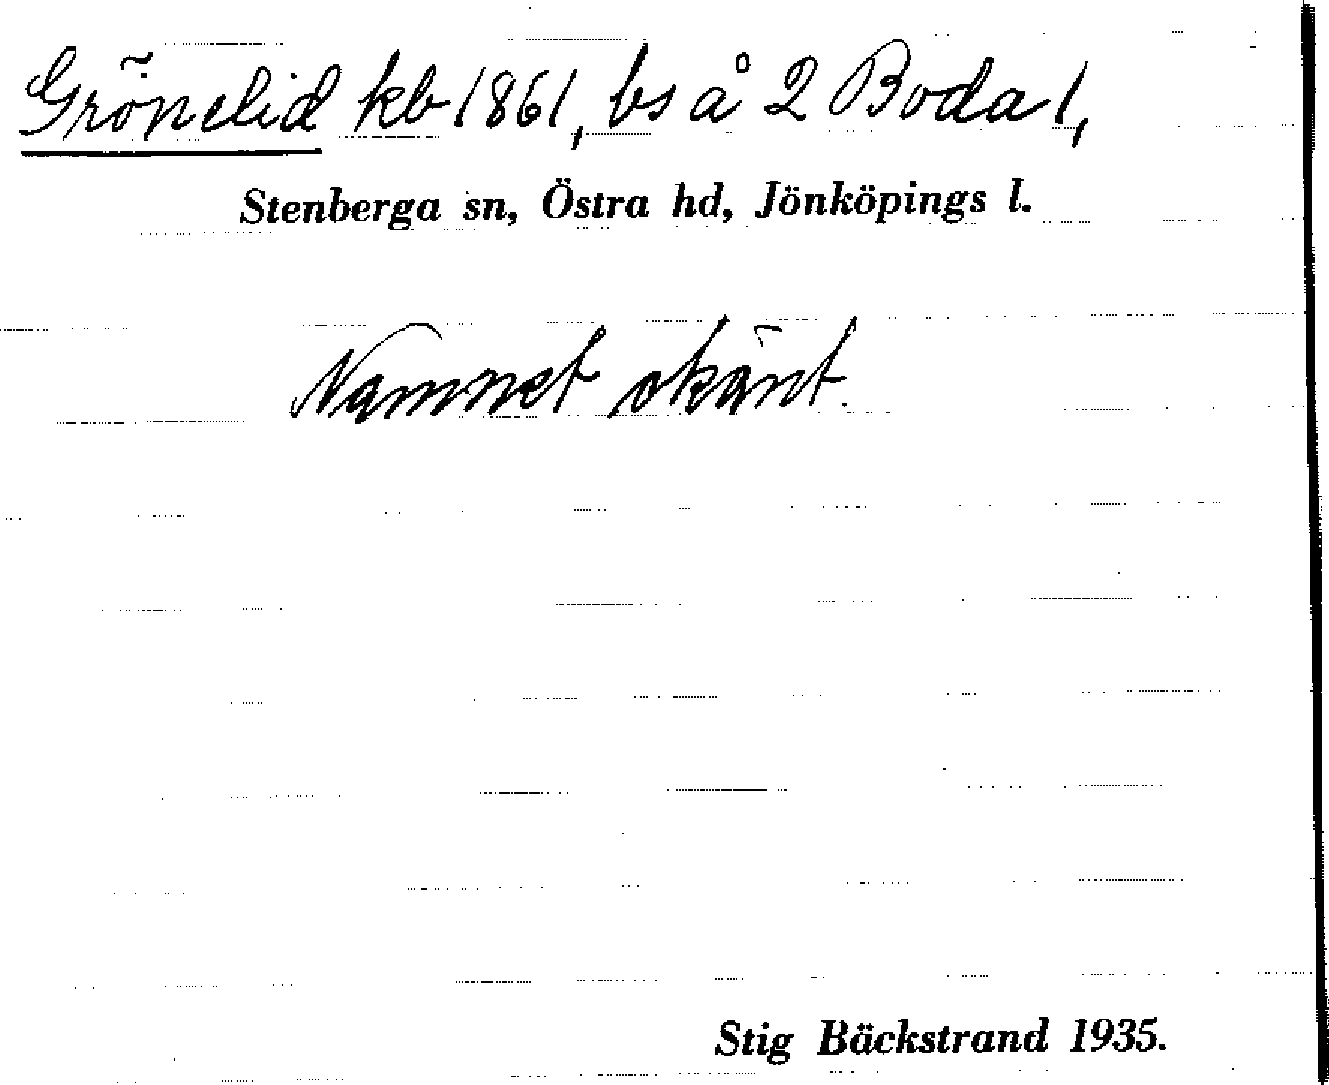 Grönelid kb 1861, bs å 2 Boda 1,
Stenberga sn, Östra hd, Jönköpings l.
Namnet okänt.
Stig Bäckstrand 1935.